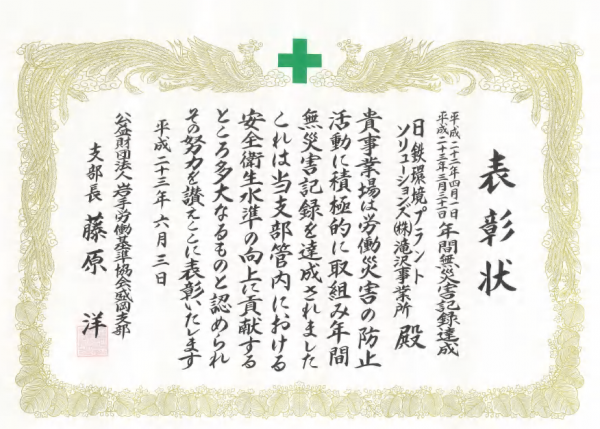 表彰状
平成二十二年四月一日
平成二十三年三月三十一日
年間無災害記録達成
日鉄環境プラント
ソリューションズ㈱滝沢事業所
殿
貴事業場は労働災害の防止
活動に積極的に取組み年間
無災害記録を達成されました
これは当支部管内における
安全衛生水準の向上に貢献する
ところ多大なるものと認められ
その努力を讃えここに表彰いたします
平成二十三年六月三日
公益財団法人岩手労働基準協会盛岡支部
支部長 藤原 洋